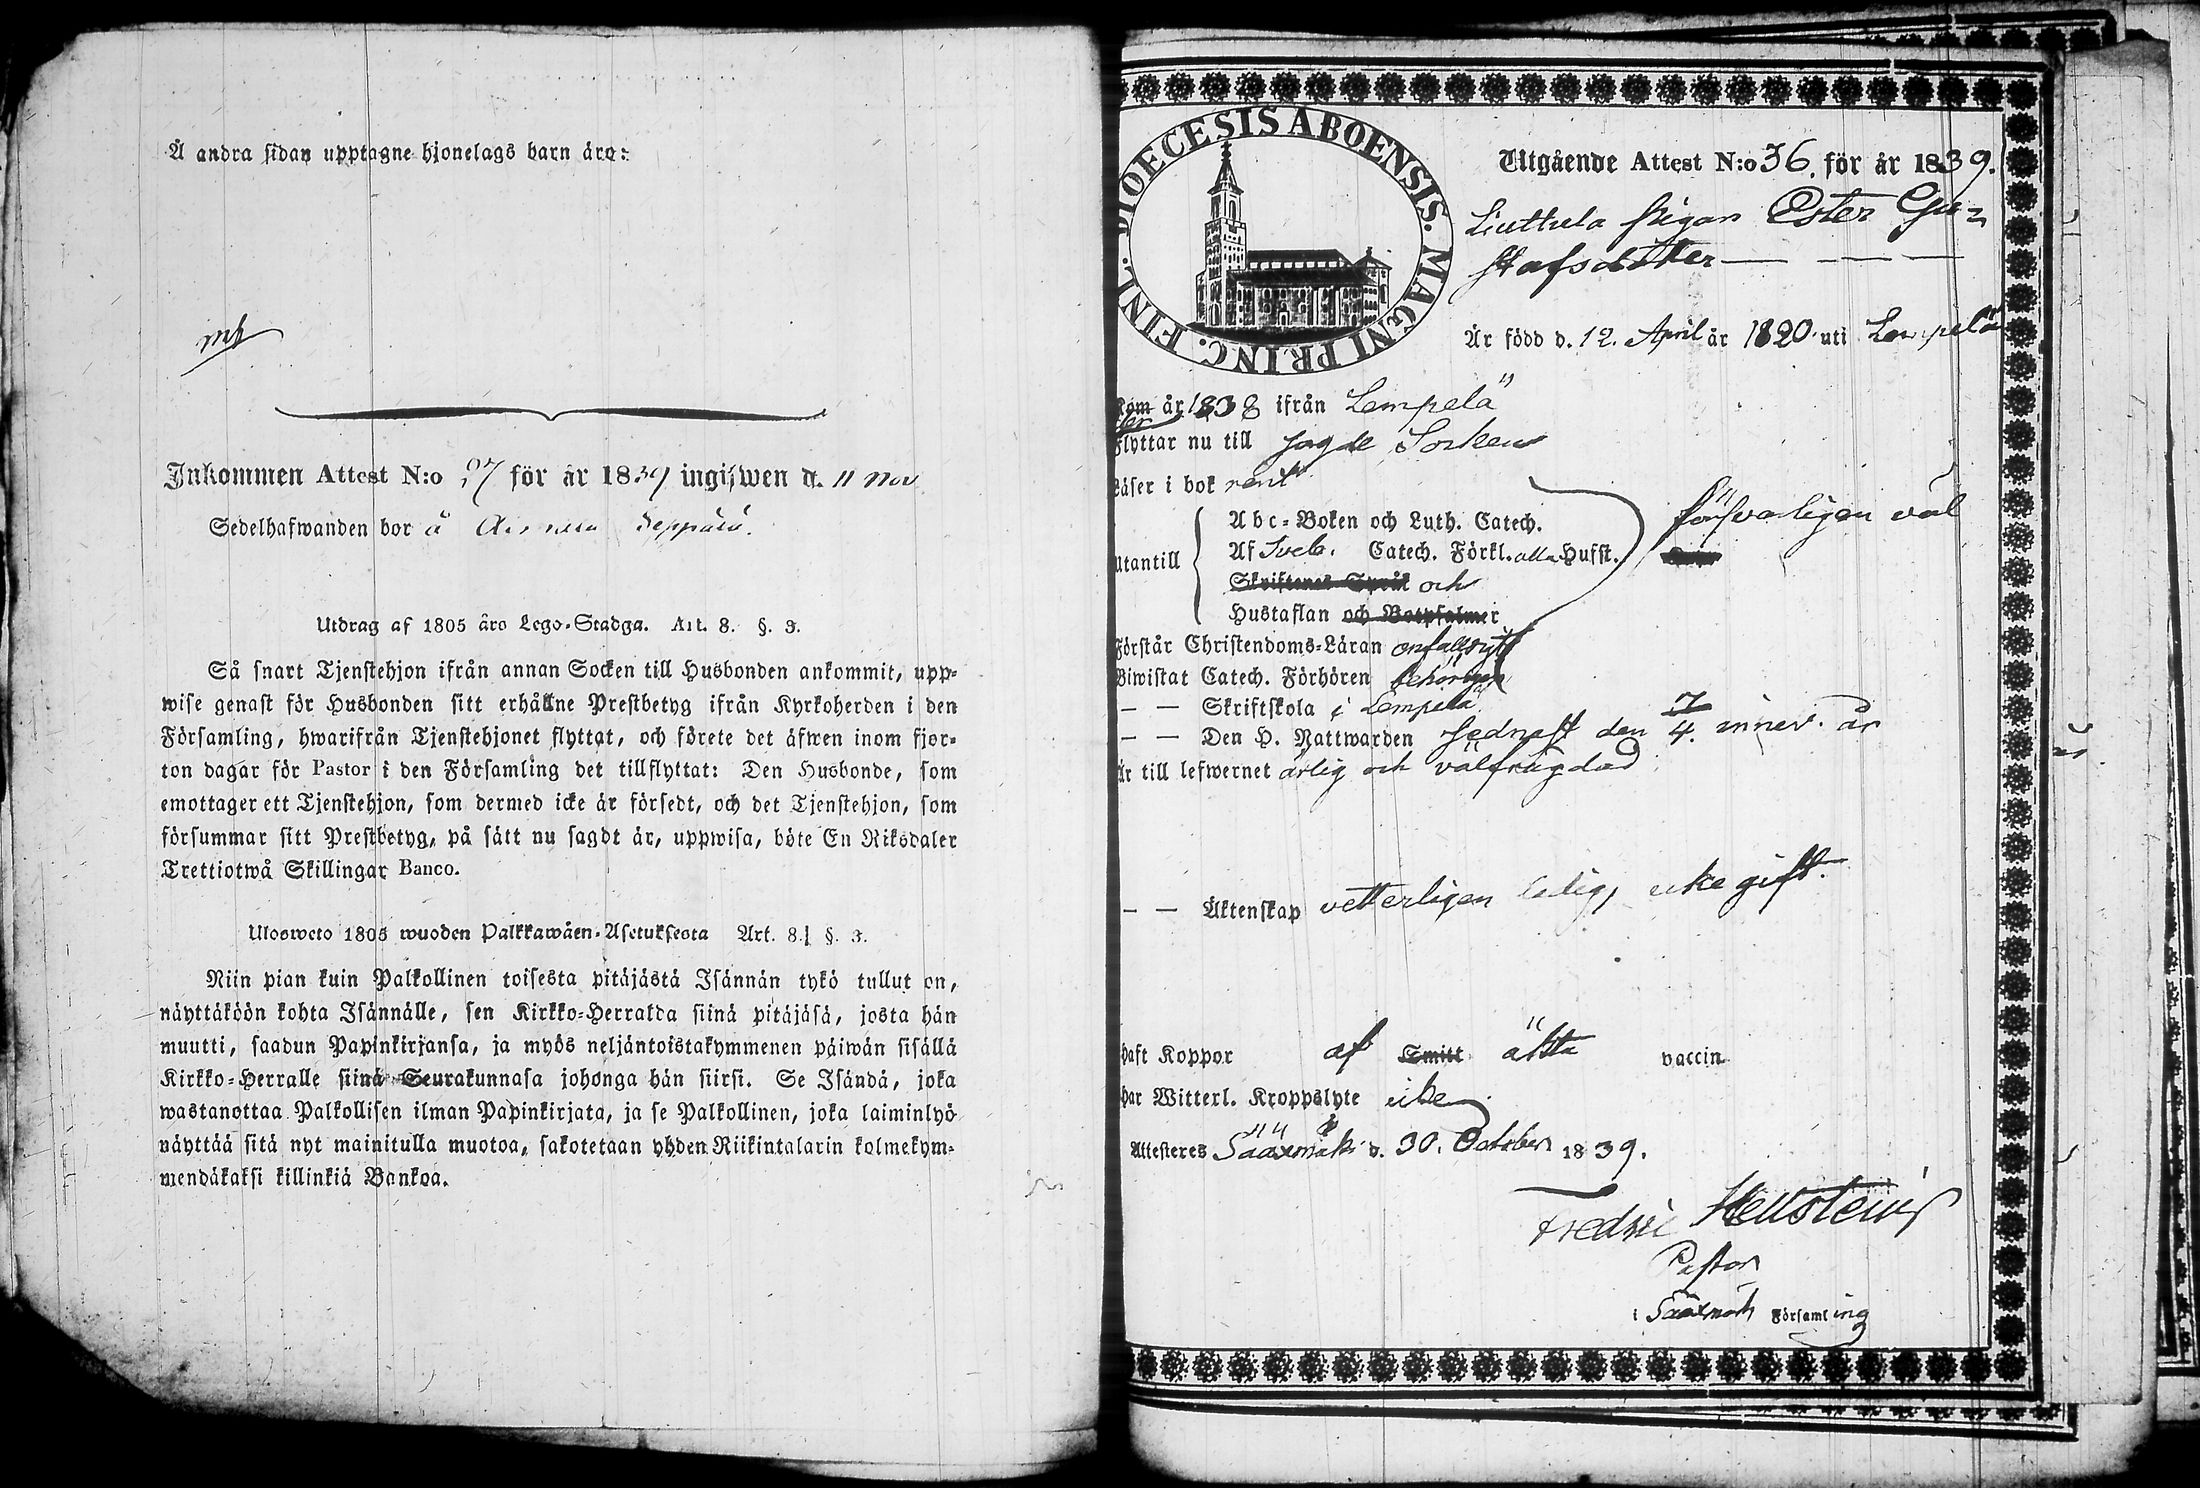 Å andra sidan upptagne hjonelags barn äro:
Inkommen Attest N:o 97 för år 1839 ingifwen d. 11 Nov
Sedelhafwanden bor å Seppälä.
Utdrag af 1805 års Lego-Stadga. Art. 8. §. 3.
Så snart Tjenstehjon ifrån annan Socken till Husbonden ankommit, upp-
wise genast för Husbonden sitt erhållne Prestbetyg ifrån Kyrkoherden i den
Församling, hwarifrån Tjenstehjonet flyttat, och förete det äfwen inom fjor-
ton dagar för Pastor i den Församling det tillflyttat: Den Husbonde, som
emottager ett Tjenstehjon, som dermed icke är försedt, och det Tjenstehjon, som
försummar sitt Prestbetyg, på sätt nu sagdt är, uppwisa, böte En Riksdaler
Trettiotwå Skillingar Banco.
Ulosweto 1805 wuoden Palkkawäen-Asetuksesta Art. 8. §. 3.
Niin pian kuin Palkollinen toisesta pitäjästä Isännän tykö tullut on,
näyttäköön kohta Isännälle, sen Kirkko-Herralda siinä pitäjäsä, josta hän
muutti, saadun Papinkirjansa, ja myös neljäntoistakymmenen päiwän sisällä
Kirkko-Herralle siinä Seurakunnasa johonga hän siirsi. Se Isändä, joka
wastanottaa Palkollisen ilman Papinkirjata, ja se Palkollinen, joka laiminlyö
näyttää sitä nyt mainitulla muotoa, sakotetaan yhden Riikintalarin kolmekym-
mendäkaksi killinkiä Bankoa.
DIOECESIS ABOENSIS. MAGNI PRINC. FINL.
Utgående Attest N:o 36. för år 1839.
Liuttula pigan Ester Gu-
stafsdotter
Är född d. 12. April år 1820 uti Lempelä
Kom år 1838 ifrån Lempelä
Flyttar nu till sagde Socken
Läser i bok rent
Utantill
Abc-Boken och Luth. Catech.
Af Sveb. Catech. Förkl. alla Hufst.
Skriftenes Språk och
Hustaflan och Botpsalmer
försvarligen väl
Förstår Christendoms-Läran enfalldigt
Biwistat Catech. Förhören behörigen
— — Skriftskola i Lempelä
— — Den H. Nattwarden sednast den 7/4. innev. år
Är till lefwernet ärlig och välfrägdad
— — Äktenskap vetterligen ledig, icke gift.
haft Koppor af Smitt äkta vaccin
har Witterl. Kroppslyte icke
Attesteres Sääxmäki d. 30. October 1839.
Fredric Hellstenius
Pastor
i Sääxmäki Församling